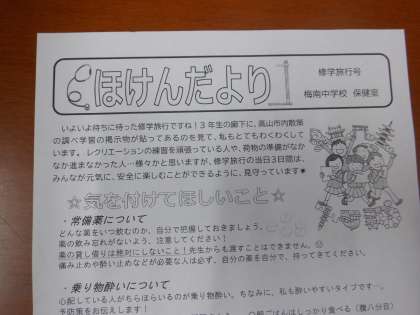 ほけんだより
修学旅行号
梅南中学校 保健室
いよいよ待ちに待った修学旅行ですね!3年生の廊下に、高山市内散策
の調べ学習の掲示物が貼ってあるのを見て、私もとてもわくわくして
います。レクリエーションの練習を頑張っている人や、荷物の準備がなか
なか進まなかった人…様々かと思いますが、修学旅行の当日3日間は、
みんなが元気に、安全に楽しむことができるように、見守っています★
☆気を付けてほしいこと☆
・常備薬について
どんな薬をいつ飲むのか、自分で把握しておきましょう。
薬の飲み忘れがないよう、注意してください!
薬の貸し借りは絶対にしないこと!先生からも渡すことはできません。
痛み止めや酔い止めなどが必要な人は必ず、自分の薬を自分で、持ってきてください。
・乗り物酔いについて
心配している人がちらほらいるのが乗り物酔い。ちなみに、私も酔いやすいタイプです…。
予防策をお伝えします!
朝ごはんはしっかり食べる(腹八分目)